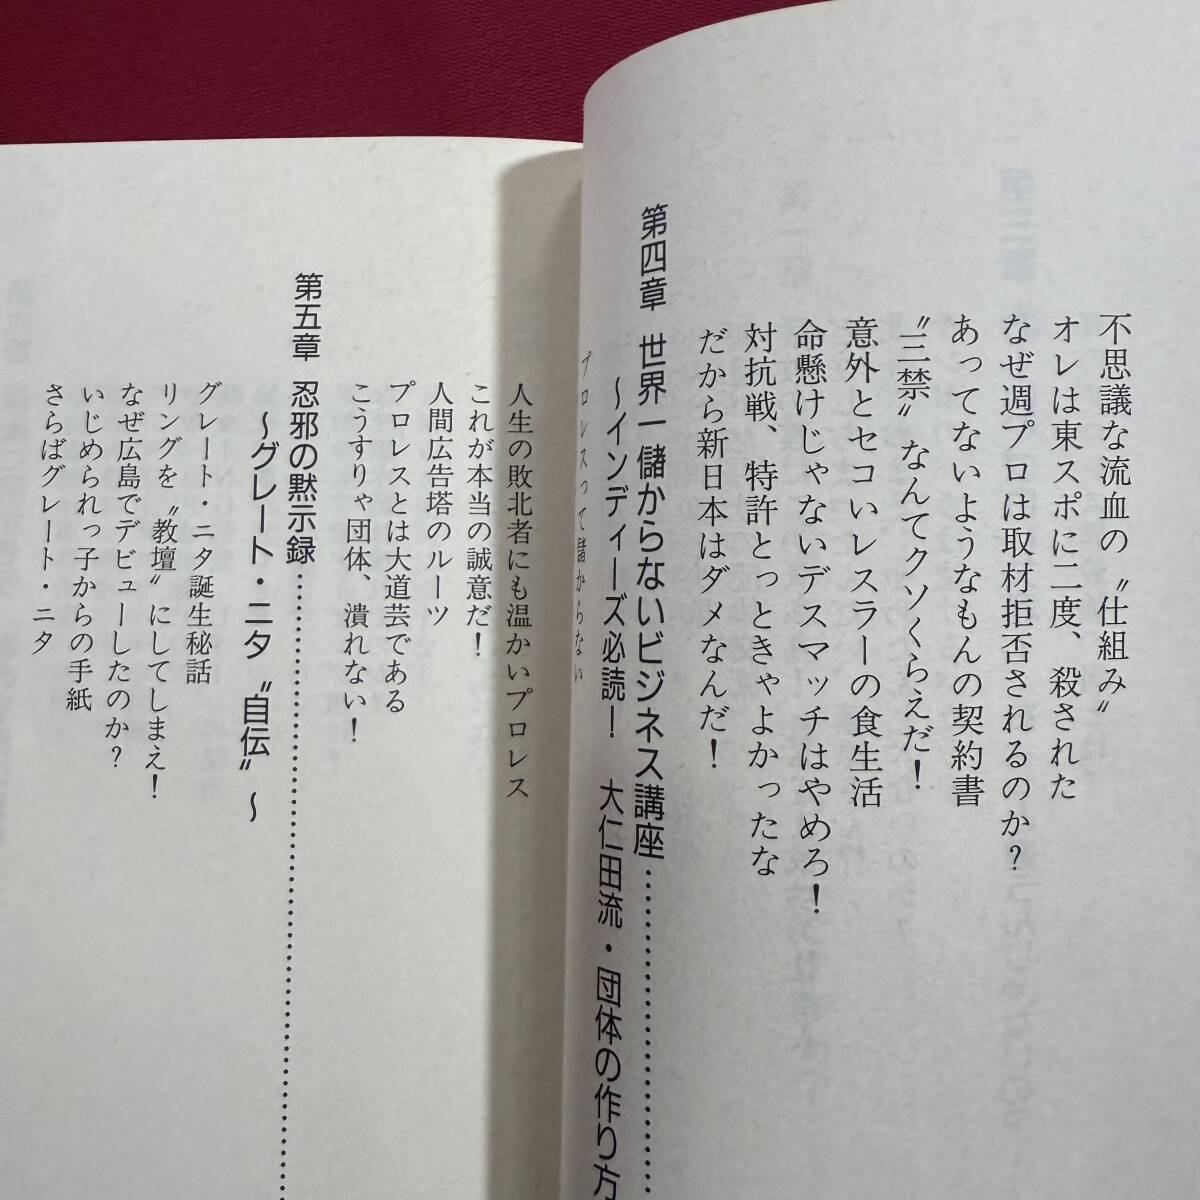 不思議な流血の〝仕組み〟
オレは東スポに二度、殺された
なぜ週プロは取材拒否されるのか?
あってないようなもんの契約書
〝三禁〟なんてクソくらえだ!
意外とセコいレスラーの食生活
命懸けじゃないデスマッチはやめろ!
対抗戦、特許とっときゃよかったな
だから新日本はダメなんだ!
第四章 世界一儲からないビジネス講座
~インディーズ必読! 大仁田流・団体の作り方
プロレスって儲からない
人生の敗北者にも温かいプロレス
これが本当の誠意だ!
人間広告塔のルーツ
プロレスとは大道芸である
こうすりゃ団体、潰れない!
第五章 忍邪の黙示録
~グレート・ニタ〝自伝〟~
グレート・ニタ誕生秘話
リングを〝教壇〟にしてしまえ!
なぜ広島でデビューしたのか?
いじめられっ子からの手紙
さらばグレート・ニタ